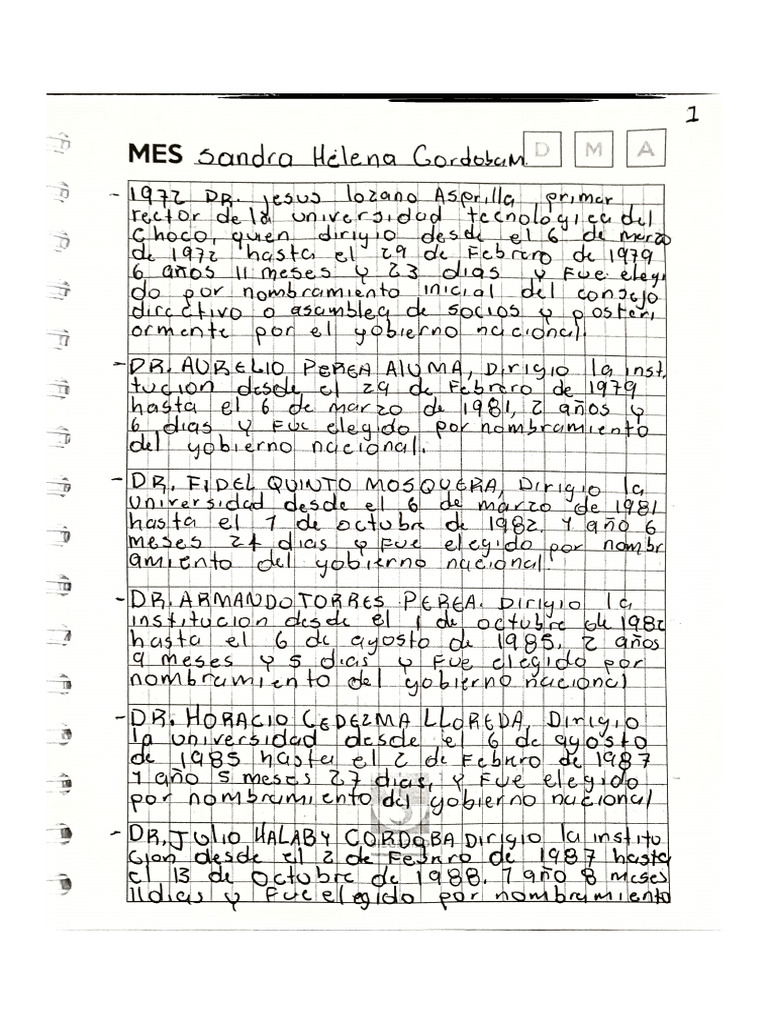 1
MES Sandra Hélena Cordobam D M A
- 1972 DR. jesus lozano Asprilla primer
rector de la universidad tecnologica del
choco, quien dirigio desde el 6 de marzo
de 1972 hasta el 29 de Febrero de 1979
6 años 11 meses y 23 dias y Fue elegi
do por nombramiento inicial del consejo
directivo o asamblea de socios y posteri
ormente por el gobierno nacional.
- DR. AURELIO PEREA Aluma, Dirigio la inst.
tucion desde el 29 de Febrero de 1979
hasta el 6 de marzo de 1981, 2 años y
6 dias y Fue elegido por nombramiento
del gobierno nacional.
- DR. FIDEL QUINTO MOSQUERA, Dirigio la
universidad desde el 6 de marzo de 1981
hasta el 1 de octubre de 1982. 1 año 6
meses 24 dias y Fue elegido por nombr
amiento del gobierno nacional.
- DR. ARMANDO TORRES PEREA. Dirigio la
institucion desde el 1 de octubre de 1982
hasta el 6 de agosto de 1985. 2 años
9 meses y 5 dias y Fue elegido por
nombramiento del gobierno nacional
- DR. HORACIO CEDEZMA LLOREDA, Dirigio
la universidad desde el 6 de agosto
de 1985 hasta el 2 de Febrero de 1987
1 año 5 meses 27 dias, y Fue elegido
por nombramiento del gobierno nacional
- DR, JULIO HALABY CORDOBA Dirigio la institu
cion desde el 2 de Febrero de 1987 hasta
el 13 de octubre de 1988. 1 año 8 meses
11 dias y Fue elegido por nombramiento